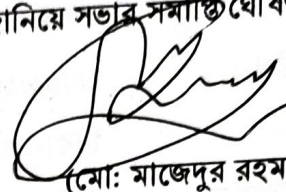 নিয়ে সভার সমাপ্তি ঘো
(মো: মাজেদুর রহম